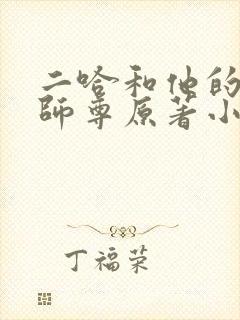 二哈和他的
師尊原著小
丁福荣